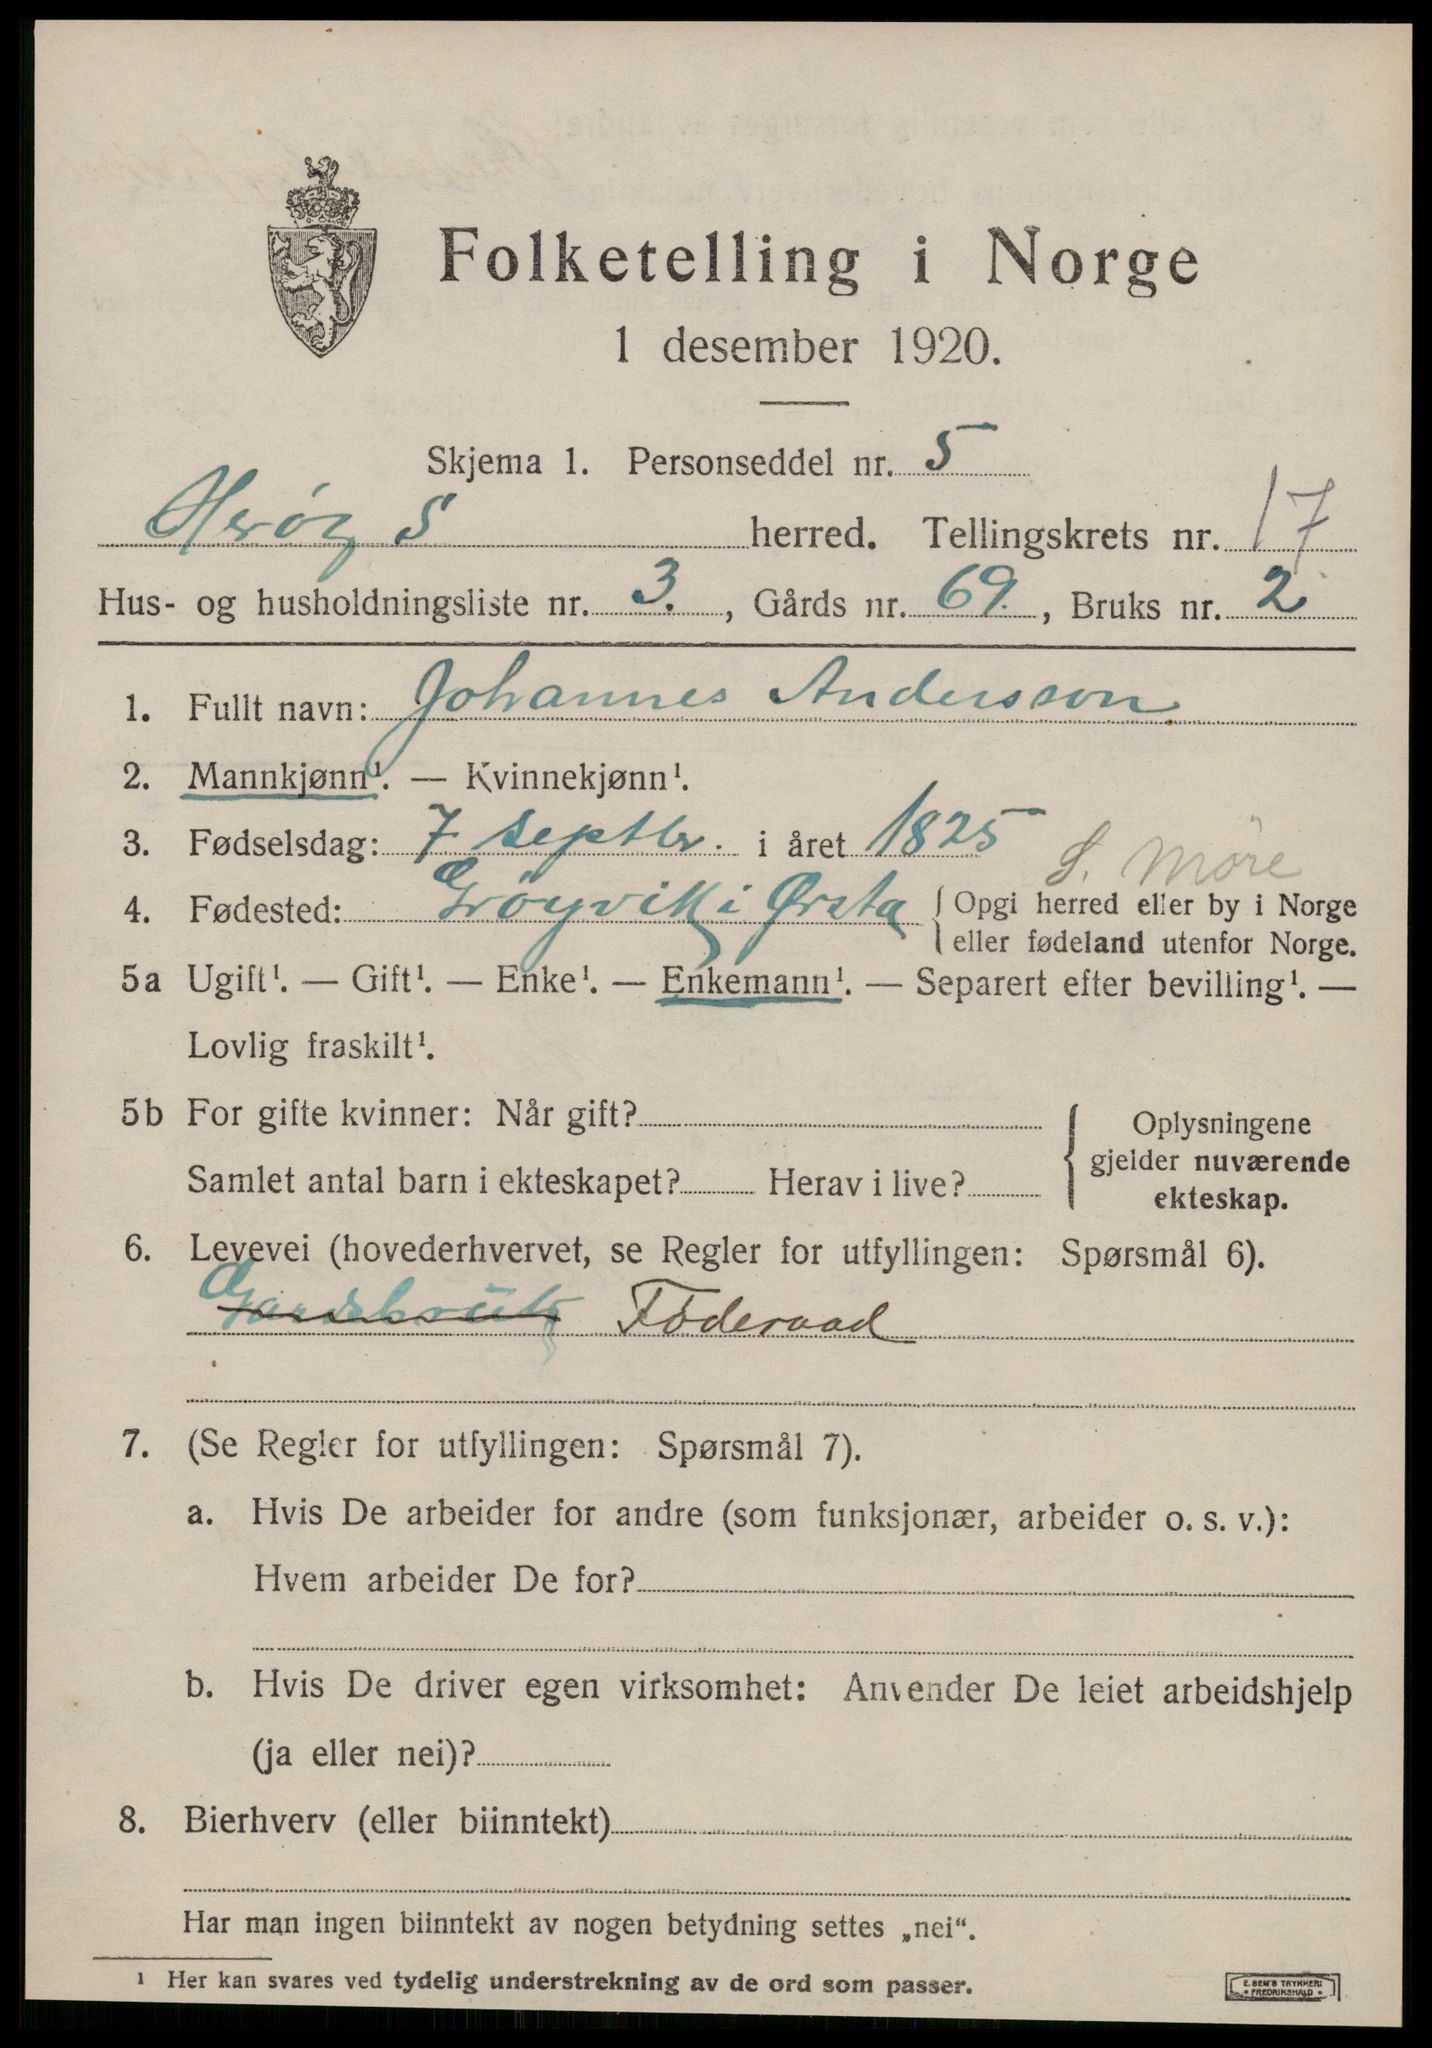 Folketelling i Norge
1 desember 1920.
Skjema 1. Personseddel nr. 5
Herøy S herred. Tellingskrets nr. 17
Hus- og husholdningsliste nr. 3. , Gårds nr. 69. , Bruks nr. 2
1. Fullt navn: Johannes Andersson
2. Mannkjønn¹. — Kvinnekjønn¹.
3. Fødselsdag: 7 septbr. i året 1825
S. Möre
4. Fødested: Gröyvik i Ørsta { Opgi herred eller by i Norge
eller fødeland utenfor Norge.
5a Ugift¹. — Gift¹. — Enke¹. — Enkemann¹. — Separert efter bevilling¹. —
Lovlig fraskilt¹.
5b For gifte kvinner: Når gift? { Oplysningene
gjelder nuværende
Samlet antal barn i ekteskapet? Herav i live?
ekteskap.
6. Levevei (hovederhvervet, se Regler for utfyllingen: Spørsmål 6).
Føderaad
7. (Se Regler for utfyllingen: Spørsmål 7).
a. Hvis De arbeider for andre (som funksjonær, arbeider o. s. v.):
Hvem arbeider De for?
b. Hvis De driver egen virksomhet: Anvender De leiet arbeidshjelp
(ja eller nei)?
8. Bierhverv (eller biinntekt)
Har man ingen biinntekt av nogen betydning settes „nei“.
¹ Her kan svares ved tydelig understrekning av de ord som passer.
E. SEM'S TRYKKERI
FREDRIKSHALD